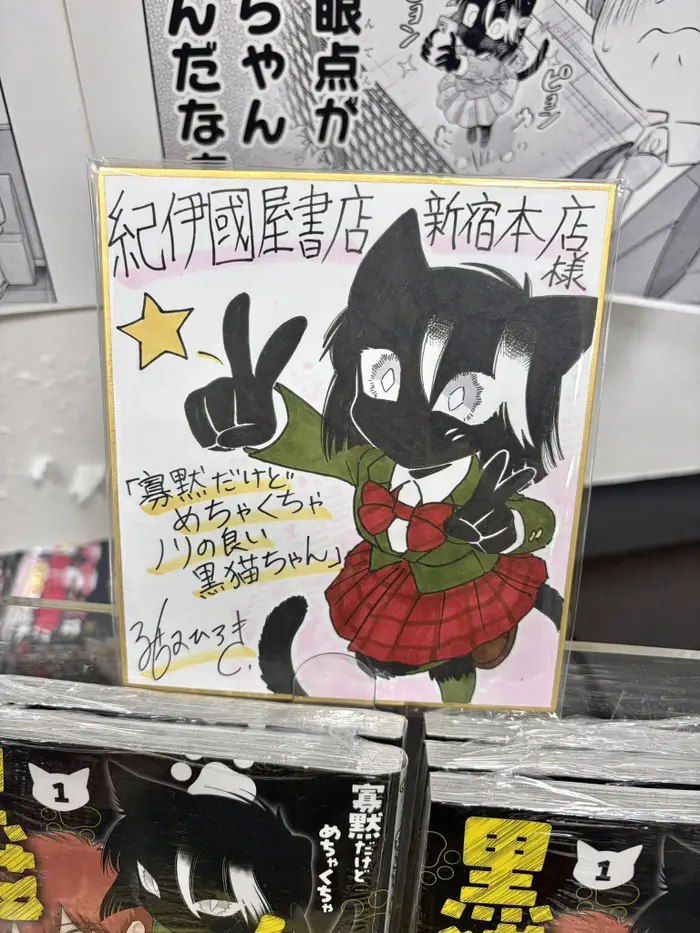 眼点が
ちゃん
んだな
ピョン
ピョン
紀伊國屋書店 新宿本店
様
「寡黙だけど
めちゃくちゃ
ノリの良い
黒猫ちゃん」
1
寡黙だけど
めちゃくちゃ
黒猫
1